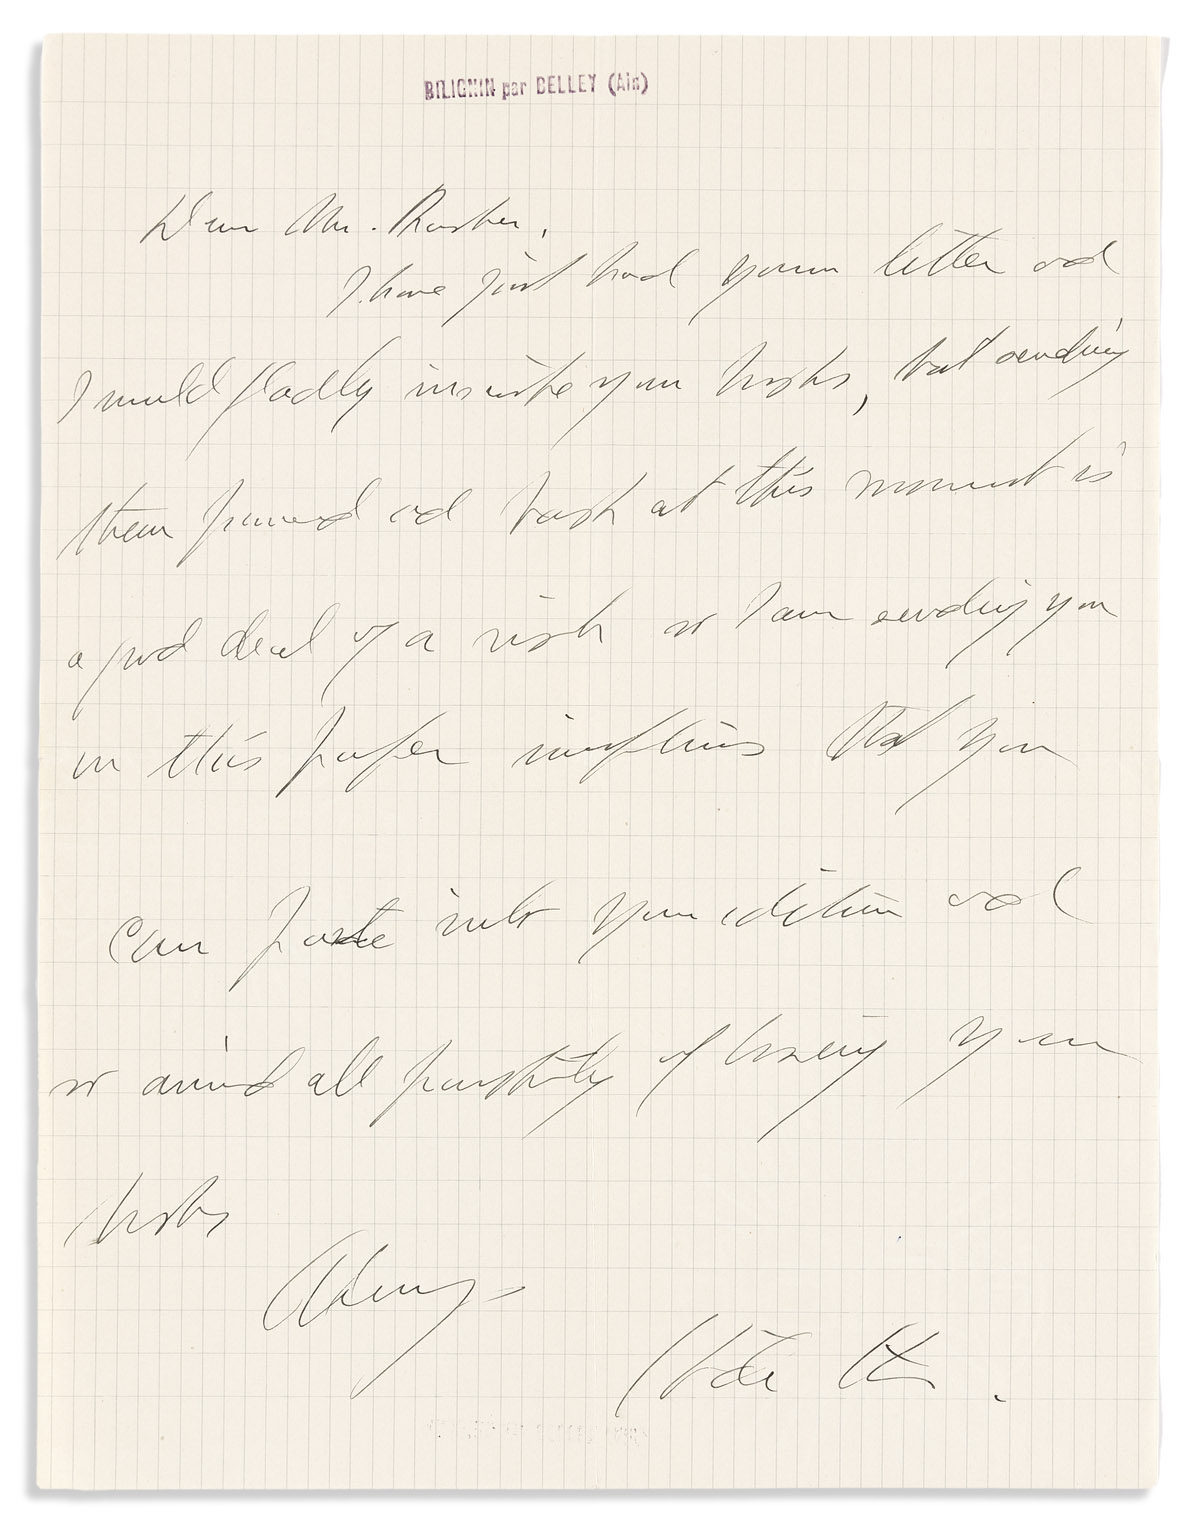 BILIGNIN par BELLEY (Ain)
Dear Mr.
I have just had your letter and
I would gladly inscribe your books, but sending
them forward and back at this moment is
a good deal of a risk so I am sending you
on this paper that you
can paste into your edition and
so avoid all possibility of losing your
books
Always